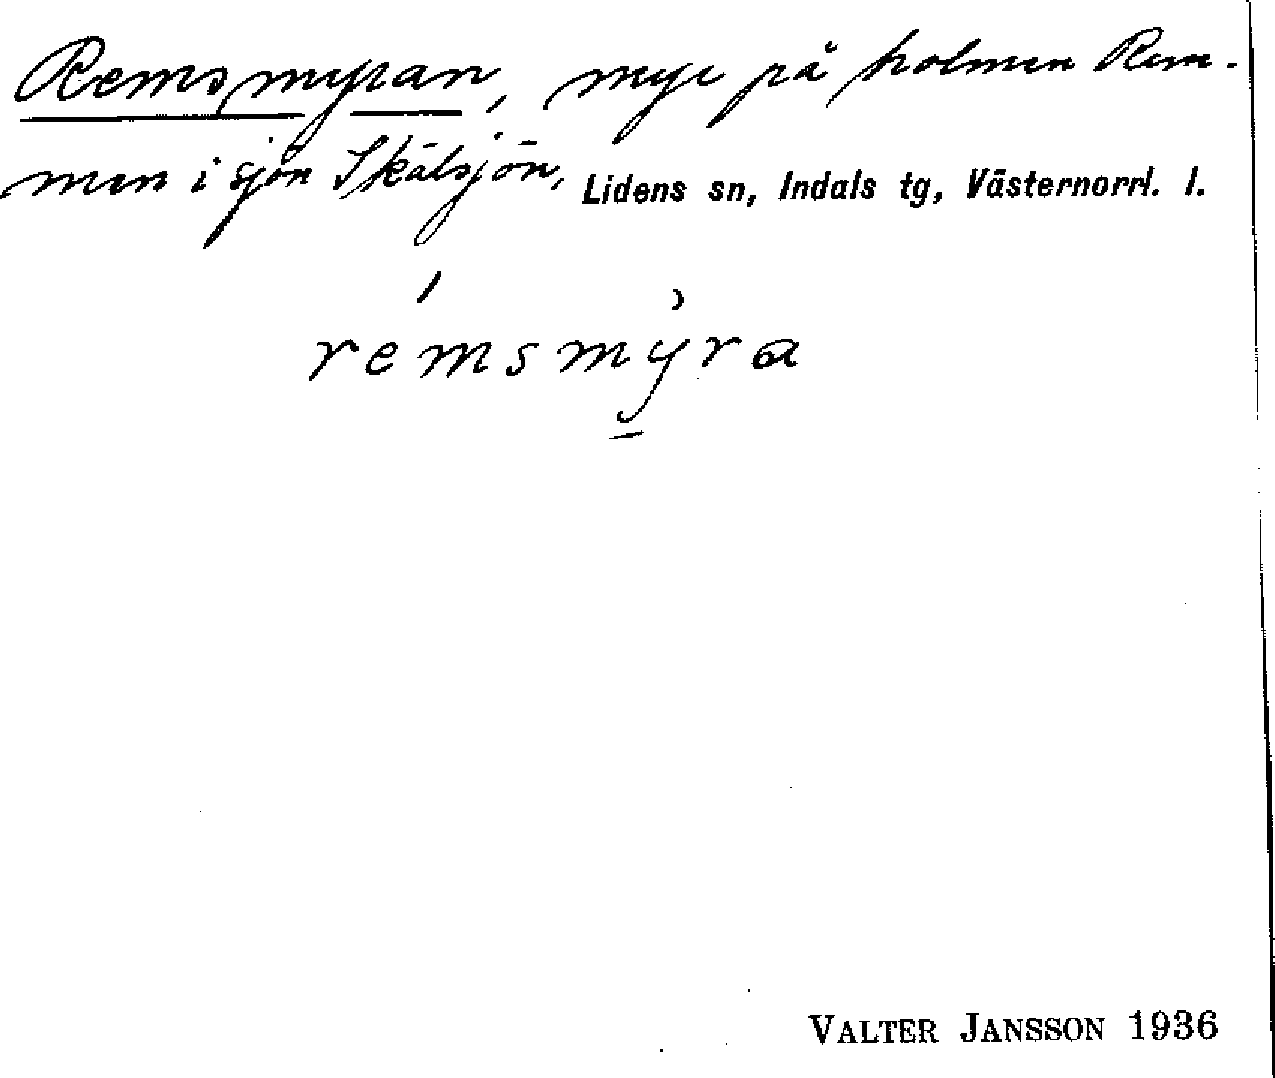 Remsmyran, myr på holmen Rem-
men i sjön Skälsjön, Lidens sn, Indals tg, Västernorrl. l.
remsmyra
VALTER JANSSON 1936